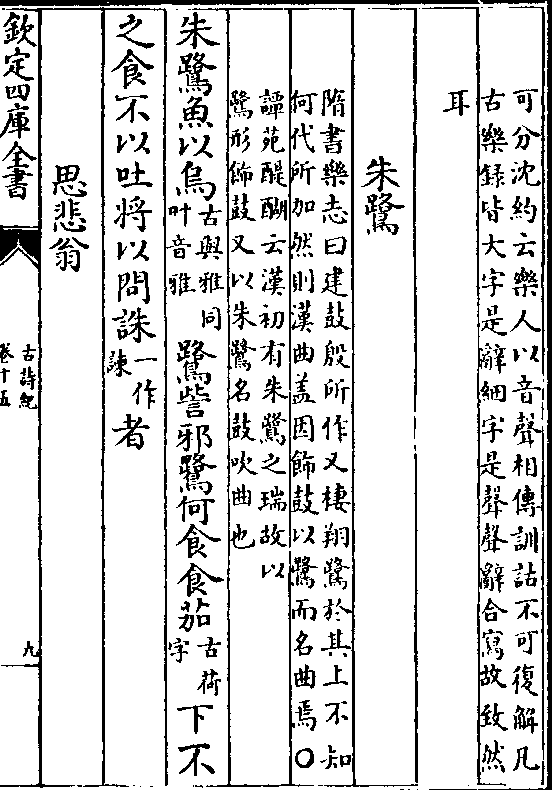 可分沈約云樂人以音聲相傳訓詁不可復解凡
古樂録皆大字是辭細字是聲聲辭合寫故致然
耳
朱鷺
隋書樂志曰建鼓殷所作又棲翔鷺於其上不知
何代所加然則漢曲葢因飾鼓以鷺而名曲焉〇
譚苑醍醐云漢初有朱鷺之瑞故以
鷺形飾鼓又以朱鷺名鼓吹曲也
朱鷺魚以烏古與雅同叶音雅鷺訾邪鷺何食食茄古荷字下不
之食不以吐將以問誅一作諫者
思悲翁
欽定四庫全書
古詩紀
卷十五
九